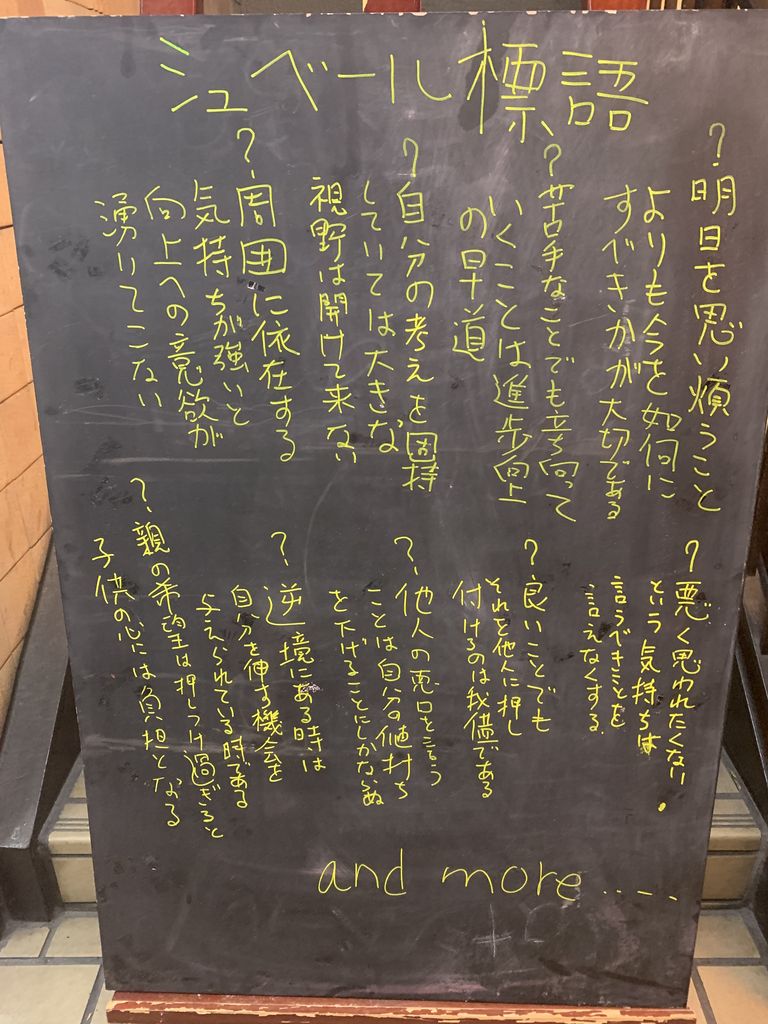 シュベール標語
?明日を思い煩うこと
よりも今を如何に
すべきかが大切である
?苦手なことでも立ち向って
いくことは進歩向上
の早道
?自分の考えを固持
していては大きな
視野は開けて来ない
?周囲に依在する
気持ちが強いと
向上への意欲が
湧いてこない
?悪く思われたくない
という気持ちは
言うべきことを
言えなくする
?良いことでも
それを他人に押し
付けるのは我儘である
?他人の悪口を言う
ことは自分の値打ち
を下げることにしかならぬ
?逆境にある時は
自分を伸す機会を
与えられている時である
?親の希望は押しつけ過ぎると
子供の心には負担となる
and more.....